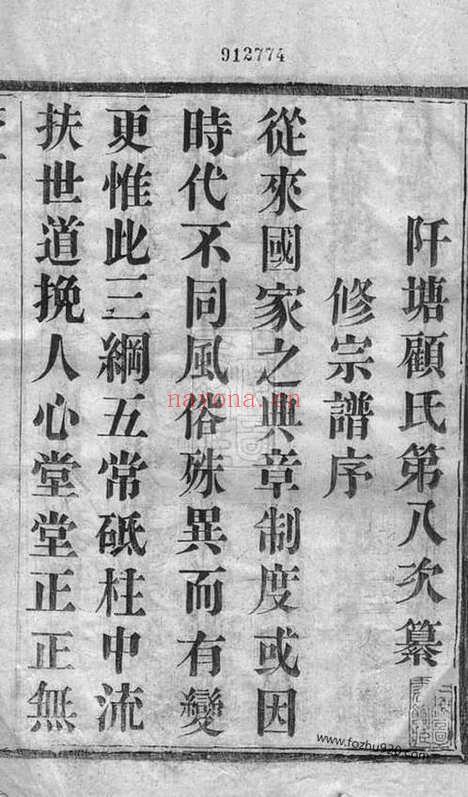 912774
阡塘顧氏第八次纂
修宗譜序
從來國家之典章制度或因
時代不同風俗殊異而有變
更惟此三綱五常砥柱中流
扶世道挽人心堂堂正正無
nayona.cn
www.fozhu920.com